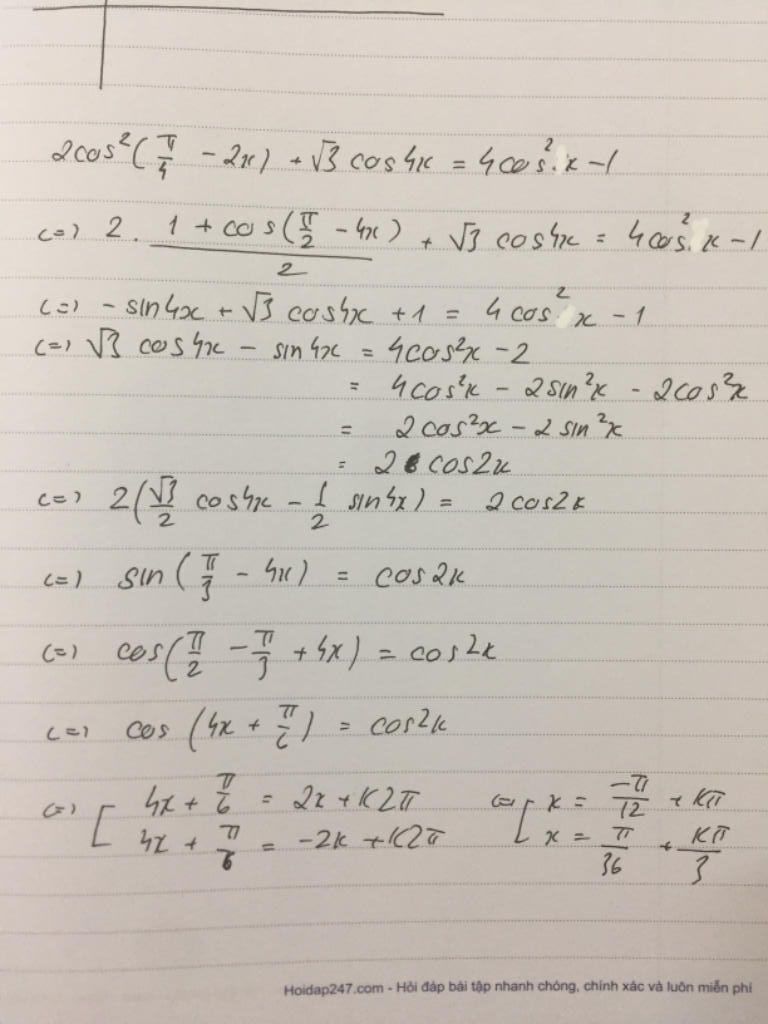 2cos²(π/4 - 2x) + √3 cos4x = 4cos²x - 1
<=> 2 . (1 + cos(π/2 - 4x))/2 + √3 cos4x = 4cos²x - 1
<=> - sin4x + √3 cos4x + 1 = 4cos²x - 1
<=> √3 cos4x - sin4x = 4cos²x - 2
= 4cos²x - 2sin²x - 2cos²x
= 2cos²x - 2sin²x
= 2 cos2x
<=> 2(√3/2 cos4x - 1/2 sin4x) = 2cos2x
<=> sin(π/3 - 4x) = cos2x
<=> cos(π/2 - π/3 + 4x) = cos2x
<=> cos(4x + π/6) = cos2x
<=> [ 4x + π/6 = 2x + K2π <=> [ x = -π/12 + Kπ
4x + π/6 = -2x + K2π x = π/36 + Kπ/3
Hoidap247.com - Hỏi đáp bài tập nhanh chóng, chính xác và luôn miễn phí